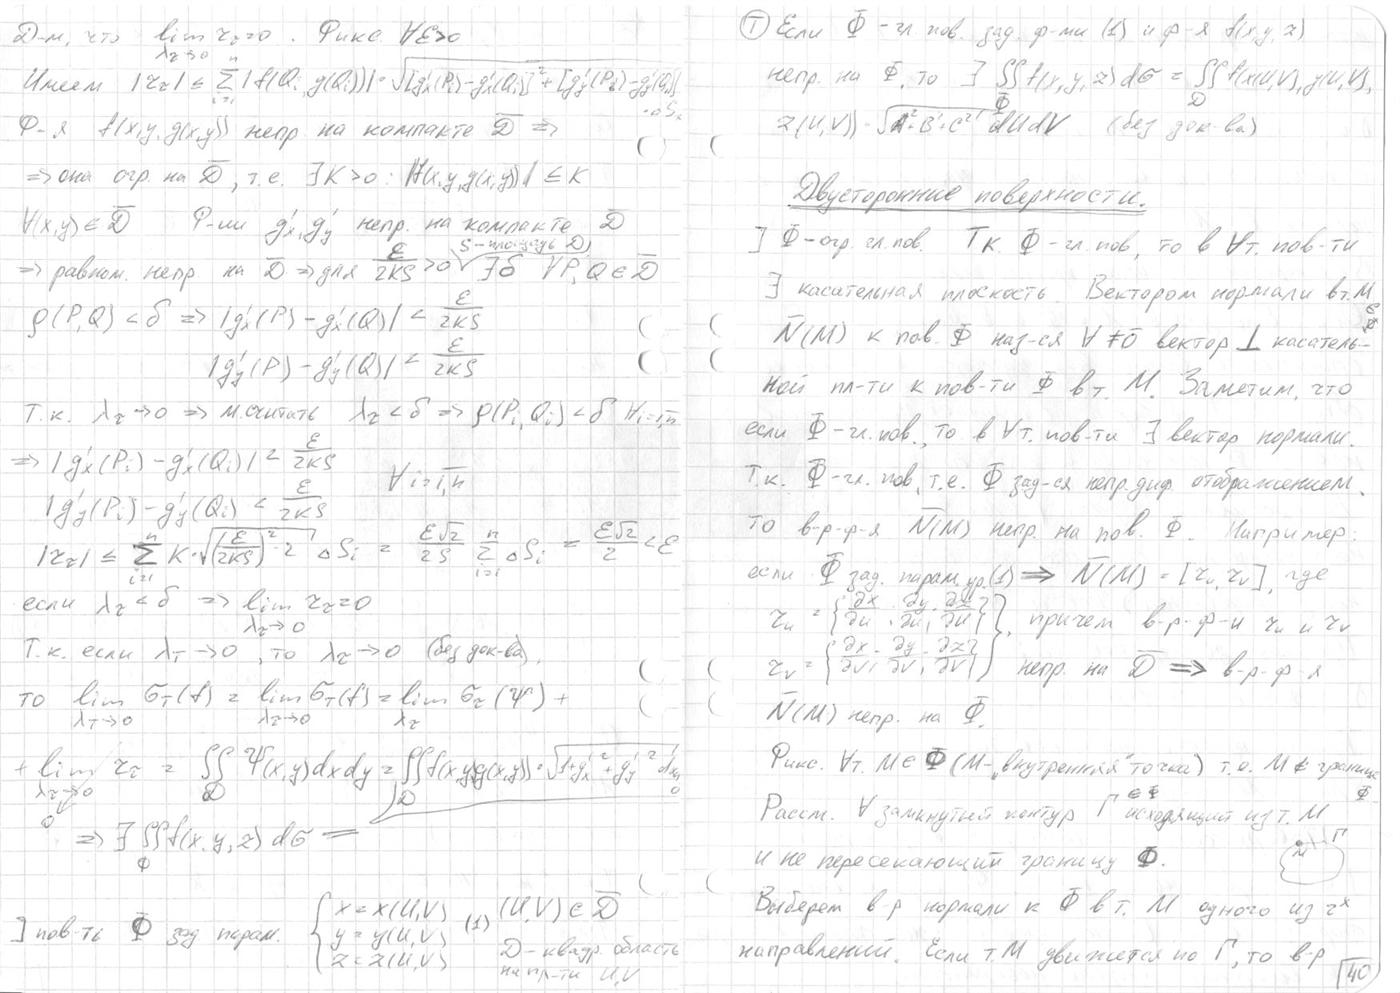 Д-м, что lim r_τ=0. Фикс. ∀ε>0
λ_τ→0
Имеем |r_τ| ≤ Σ_{i=1}^n |f(Q_i, g(Q_i))|·√([g'_x(P_i)-g'_x(Q_i)]²+[g'_y(P_i)-g'_y(Q_i)]
·ΔS_i
Ф-я f(x,y,g(x,y)) непр. на компакте D̄ ⇒
⇒ она огр. на D̄, т.е. ∃K>0: |f(x,y,g(x,y))| ≤ K
∀(x,y)∈D̄ Ф-ии g'_x, g'_y непр. на компакте D̄
⇒ равном. непр. на D̄ ⇒ для ε/2KS >0 (S-площадь D) ∃δ ∀P,Q∈D̄
ρ(P,Q)<δ ⇒ |g'_x(P)-g'_x(Q)| < ε/2KS
|g'_y(P)-g'_y(Q)| < ε/2KS
Т.к. λ_τ→0 ⇒ м.считать λ_τ<δ ⇒ ρ(P_i,Q_i)<δ ∀i=1,n
⇒ |g'_x(P_i)-g'_x(Q_i)| < ε/2KS
∀i=1,n
|g'_y(P_i)-g'_y(Q_i)| < ε/2KS
|r_τ| ≤ Σ_{i=1}^n K·√((ε/2KS)²·2) ΔS_i = ε√2/2S Σ_{i=1}^n ΔS_i = ε√2/2 <ε
если λ_τ<δ ⇒ lim r_τ=0
λ_τ→0
Т.к. если λ_T→0, то λ_τ→0 (без док-ва),
то lim σ_T(f) = lim σ_T(f) = lim σ_τ(Ψ) +
λ_T→0 λ_τ→0 λ_τ
+ lim r_τ = ∬_D Ψ(x,y)dxdy = ∬_D f(x,y,g(x,y))·√(1+g'_x²+g'_y²) dxdy
λ_τ→0
0
⇒ ∃∬_Φ f(x,y,z) dσ =
∃ пов-ть Φ зад. парам. { x=x(U,V) y=y(U,V) z=z(U,V) (1) (U,V)∈D̄
D-квадр. область
на пл-ти U,V
Ⓣ Если Φ-гл. пов. зад. ф-ми (1) и ф-я f(x,y,z)
непр. на Φ, то ∃ ∬_Φ f(x,y,z)dσ = ∬_D f(x(U,V),y(U,V),
z(U,V))·√(A²+B²+C²) dUdV (без док-ва)
Двусторонние поверхности.
∃ Φ-огр. гл. пов. Т.к. Φ-гл. пов, то в ∀т. пов-ти
∃ касательная плоскость. Вектором нормали в т.M∈Φ
N̄(M) к пов. Φ наз-ся ∀ ≠0̄ вектор ⊥ касатель-
ной пл-ти к пов-ти Φ в т. M. Заметим, что
если Φ-гл.пов., то в ∀т. пов-ти ∃ вектор нормали.
Т.к. Φ-гл. пов, т.е. Φ зад-ся непр.диф. отображением,
то в-р-ф-я N̄(M) непр. на пов. Φ. Например:
если Φ зад. парам. ур.(1) ⇒ N̄(M) = [r_u, r_v], где
r_u = {∂x/∂u, ∂y/∂u, ∂z/∂u}, причем в-р-ф-и r_u и r_v
r_v = {∂x/∂v, ∂y/∂v, ∂z/∂v} непр. на D̄ ⇒ в-р-ф-я
N̄(M) непр. на Φ.
Фикс. ∀т. M∈Φ (M-„внутренняя" точка) т.е. M∉границе Φ
Рассм. ∀ замкнутый контур Γ∈Φ исходящий из т. M
и не пересекающий границу Φ.
M Γ
Выберем в-р нормали к Φ в т. M одного из 2х
направлений. Если т.M движется по Γ, то в-р
40